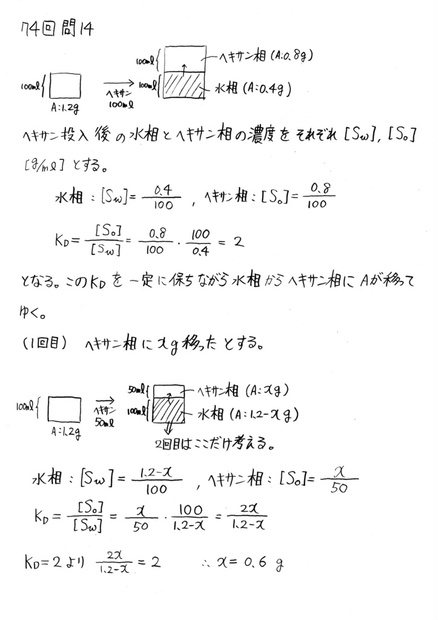 74回 問14
100ml
A:1.2g
ヘキサン
100ml
100ml
100ml
ヘキサン相(A:0.8g)
水相(A:0.4g)
ヘキサン投入後の水相とヘキサン相の濃度をそれぞれ[Sw],[So]
[g/ml]とする。
水相:[Sw]= 0.4/100 , ヘキサン相:[So]= 0.8/100
KD = [So]/[Sw] = 0.8/100 ・ 100/0.4 = 2
となる。このKDを一定に保ちながら水相からヘキサン相にAが移って
ゆく。
(1回目) ヘキサン相にxg移ったとする。
100ml
A:1.2g
ヘキサン
50ml
50ml
100ml
ヘキサン相(A:xg)
水相(A:1.2-xg)
2回目はここだけ考える。
水相:[Sw]= 1.2-x/100 , ヘキサン相:[So]= x/50
KD = [So]/[Sw] = x/50 ・ 100/1.2-x = 2x/1.2-x
KD=2より 2x/1.2-x = 2 ∴x=0.6 g